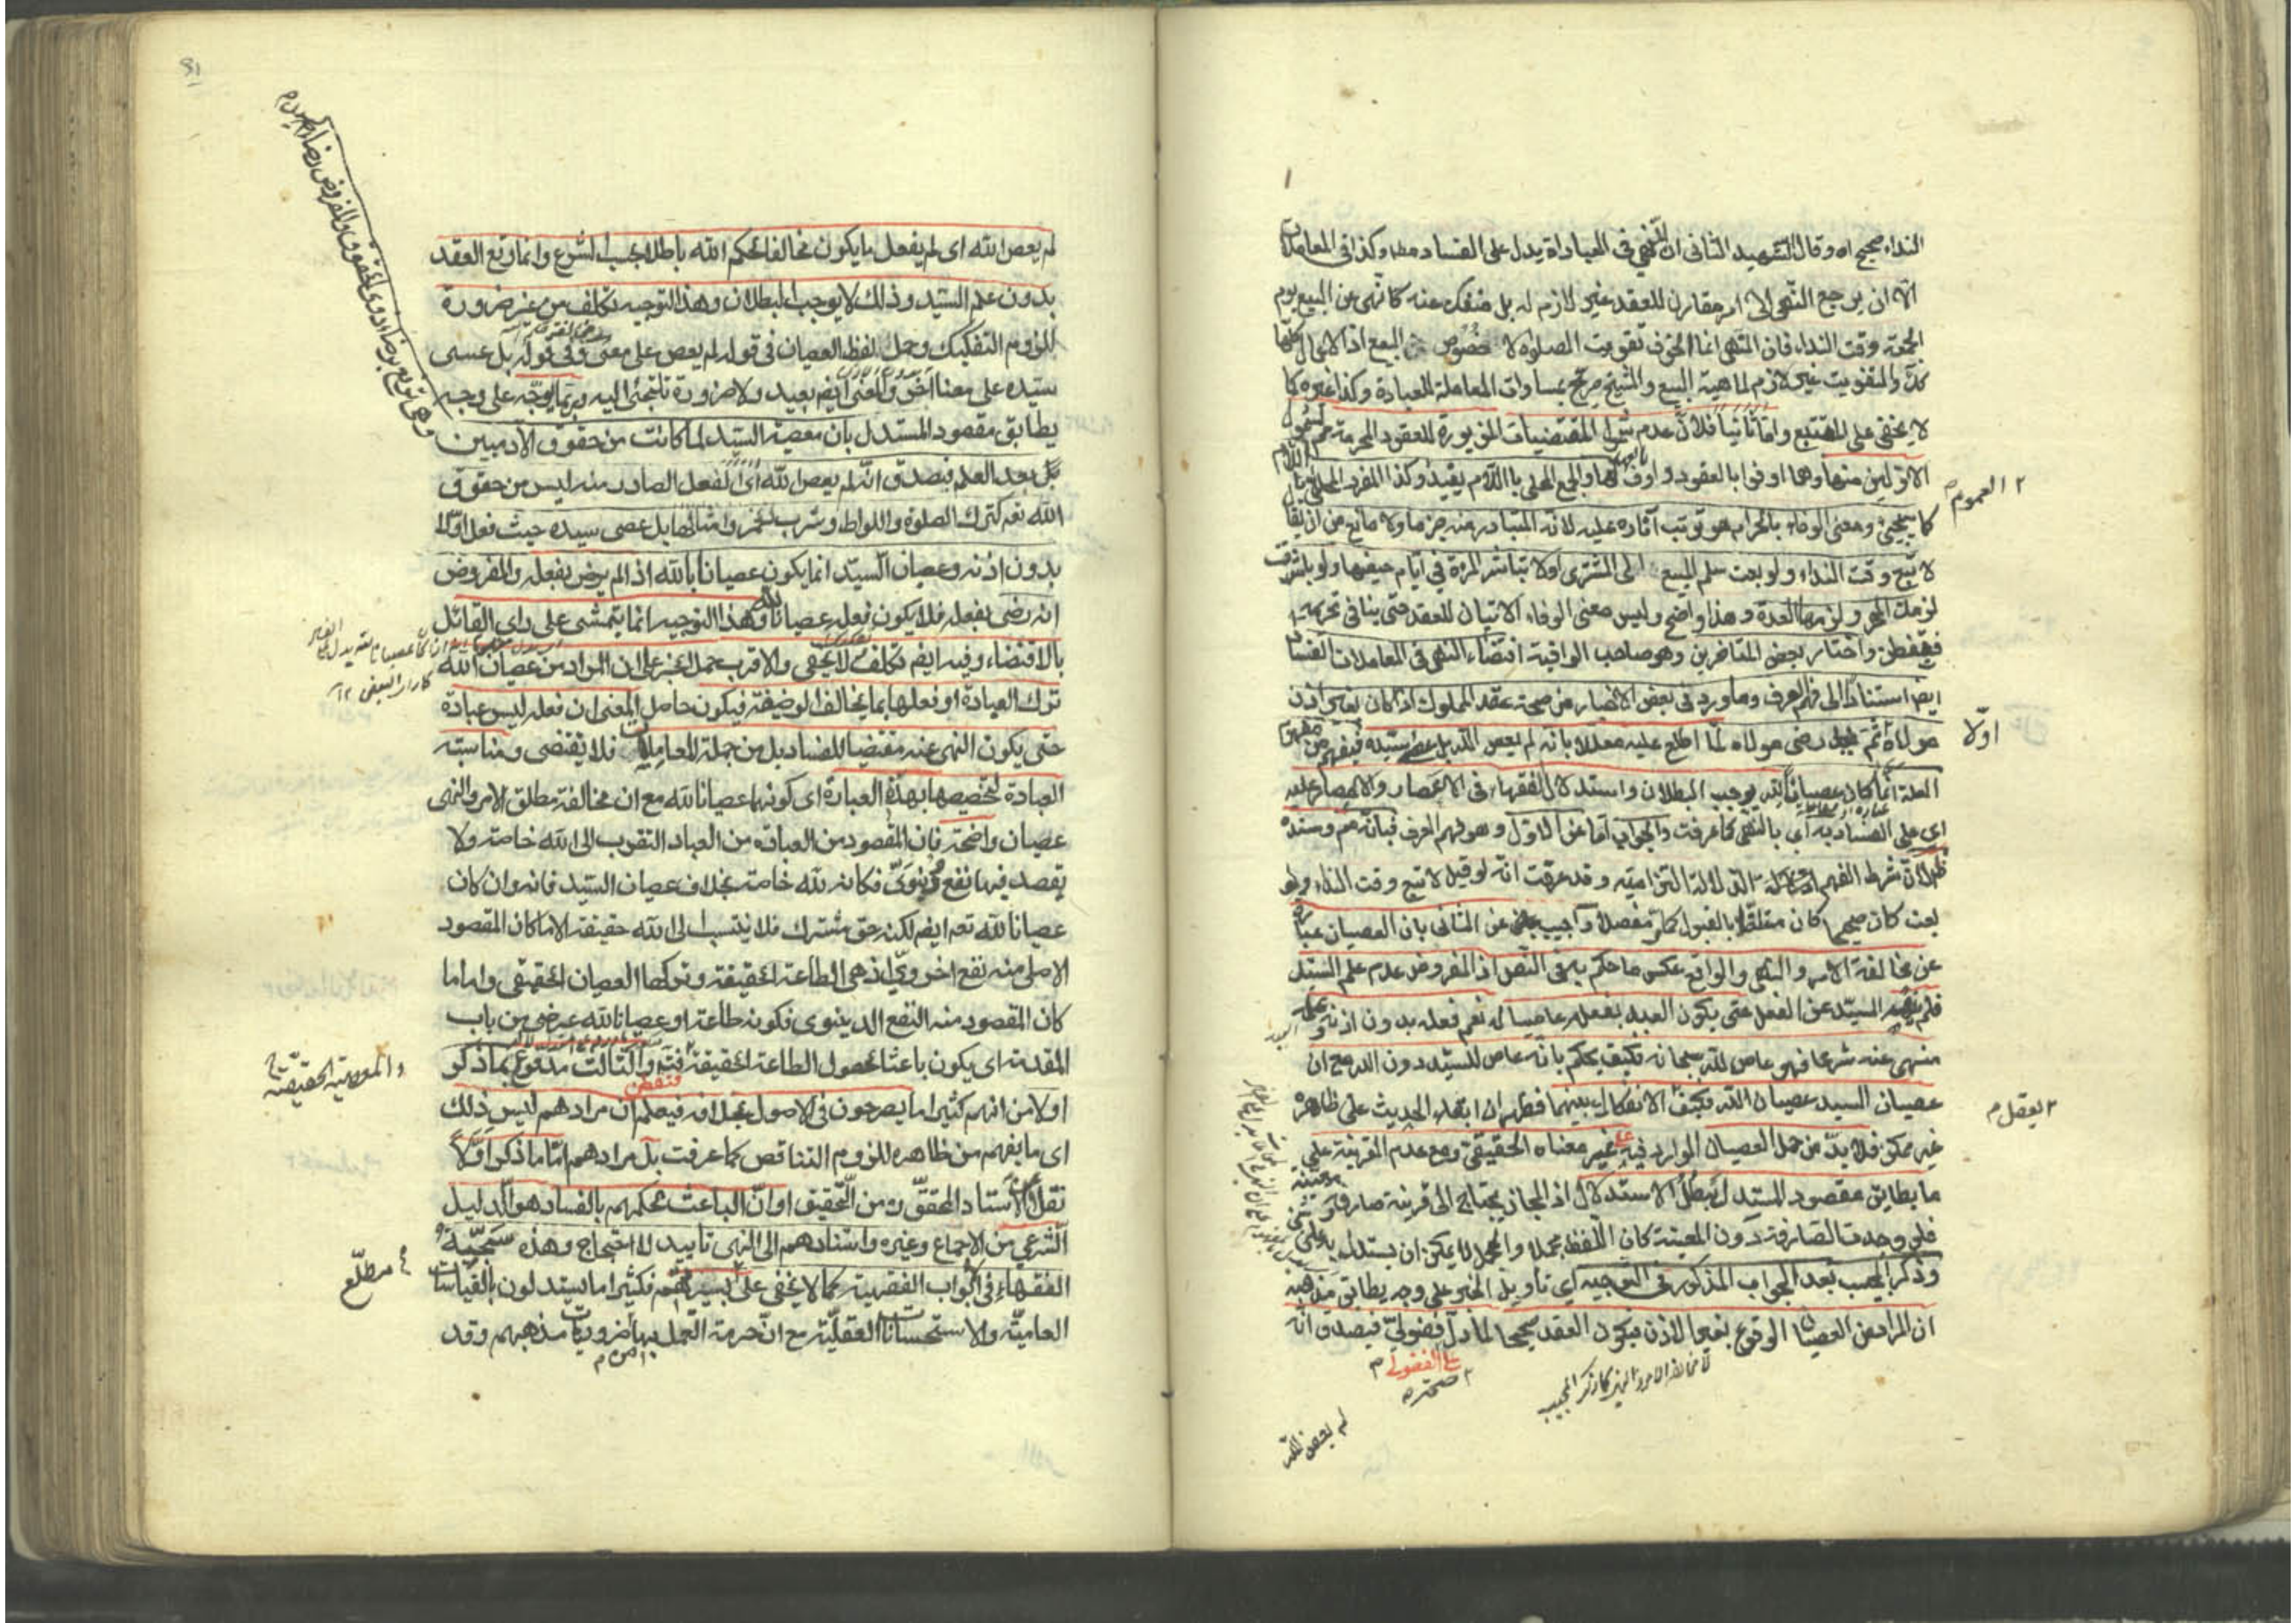 النداء صحيح اه وقال الشهيد الثانى ان النهى فى العباداة يدل على الفساد مط وكذا فى المعاملات
الا ان يرجع النهى الى امر مقارن للعقد غير لازم له بل منفك عنه كالنهى عن البيع يوم
الجمعة وقت النداء فان النهى انما لخوف تفويت الصلوة لا خصوص البيع اذ الاموال كلها
كذا والتفويت غير لازم لماهية البيع والشيخ صرح بمساوات المعاملة للعبادة وكذا غيره كما
لا يخفى على المتتبع واما ثانيا فلان عدم شمول المقتضيات المزبورة للعقود المحرمة
الاولين منها وهما اوفوا بالعقود و والجمع المحلى باللام يفيد وكذا المفرد المحلى
كما سيجئ ومعنى الوفاء بالحرام هو ترتب آثاره عليه لانه المتبادر منه جزما ولا مانع من ان يقال
لا تبع وقت النداء ولو بعت سلم المبيع الى المشترى اولا تباشر المرءة فى ايام حيضها ولو باشرت
لزمك المهر ولزمها العدة وهذا واضح وليس معنى الوفاء الاتيان للعقد حتى ينافى تحريمه
فتفطن واختار بعض المتاخرين وهو صاحب الوافية اقتضاء النهى فى المعاملات الفساد
ايضا استنادا الى فهم العرف وما ورد فى بعض الاخبار من صحة عقد المملوك اذا كان بغير اذن
مولاه ثم رضى مولاه لما اطلع عليه معللا بانه لم يعص الله بل عصى سيده فيفهم من مفهوم
العلة انما كان عصيانا لله يوجب البطلان واستدلال الفقهاء فى الاعصار والامصار عليه
اى على الفساد به اى بالنهى كما عرفت والجواب اما عن الاول وهو فهم العرف فبانه مم وسنده
ظ لان شرط الفهم الدلالة التزامية وقد عرفت انه لو قيل لا تبع وقت النداء ولو
بعت كان صحيحا كان متلقى بالقبول كما مر مفصلا واجيب عن الثانى بان العصيان عبارة
عن مخالفة الامر والنهى والواقع عكس ما حكم به فى النص اذ المفروض عدم علم السيد
فلم ينهه السيد عن الفعل حتى يكون العبد بفعله عاصيا له نعم فعله بدون اذنه
منهى عنه شرعا فهو عاص لله سبحانه فكيف يحكم بانه عاص للسيد دون الله مع ان
عصيان السيد عصيان الله فكيف الانفكاك بينهما فظهر ان ابقاء الحديث على ظاهره
غير ممكن فلا بد من حمل العصيان الوارد فيه على غير معناه الحقيقى ومع عدم القرينة على
ما يطابق مقصود المستدل يبطل الاستدلال اذ المجاز يحتاج الى قرينة صارفة
فلو وجدت الصارفة دون المعينة كان اللفظ مجملا والمجمل لا يمكن ان يستدل به على
وذكر المجيب بعد الجواب المذكور فى التوجيه اى تاويل الخبر على وجه يطابق مذهبه
ان المراد من العصيان الوقوع بغير الاذن فيكون العقد صحيحا لما دل فضولى فيصدق انه
العموم
اولا
يعقل م
على الفضولى م
صحته
لا مخالفة الامر والنهى كما ذكر المجيب
لم يعص الله
لم يعص الله اى لم يفعل ما يكون مخالفا لحكم الله باطلا بحسب الشرع وانما وقع العقد
بدون علم السيد وذلك لا يوجب البطلان وهذا التوجيه تكلف من غير ضرورة
للزوم التفكيك وحمل لفظ العصيان فى قوله لم يعص على معنى وفى قوله بل عصى
سيده على معنا آخر والمعنى ايضم بعيد ولا ضرورة تلتجئ اليه وربما يوجه على وجه
يطابق مقصود المستدل بان معصية السيد لما كانت من حقوق الآدميين
بعد العلم فيصدق انه لم يعص الله اى الفعل الصادر منه ليس من حقوق
الله تعم كترك الصلوة واللواط وشرب الخمر وامثالها بل عصى سيده حيث فعل اولا
بدون اذنه وعصيان السيد انما يكون عصيانا بالله اذ الم يرض بفعله والمفروض
انه رضى بفعله فلا يكون فعله عصيانا لله وهذا التوجيه انما يتمشى على راى القائل
بالاقتضاء وفيه ايضم تكلف لا يخفى والاقرب حمل الخبر على ان المراد من عصيان الله
ترك العبادة او فعلها بما يخالف الوضيفة فيكون حاصل المعنى ان فعله ليس عبادة
حتى يكون النهى عنه مقتضيا للفساد بل من جملة المعاملات فلا يقتضى ومناسبة
العبادة لتخصيصها بهذه العبارة اى كونها عصيانا لله مع ان مخالفة مطلق الامر والنهى
عصيان واضحة فان المقصود من العبادة من العباد التقرب الى الله خاصة ولا
يقصد فيها نفع دنيوى فكانه لله خاصة بخلاف عصيان السيد فانه وان كان
عصيانا لله تعم ايضم لكنه حق مشترك فلا ينتسب الى الله حقيقة الا ما كان المقصود
الاصلى منه نفع اخروى اذ هى الطاعة الحقيقة وتركها العصيان الحقيقى واما ما
كان المقصود منه النفع الدينوى فكونه طاعة او عصيانا لله عرضى من باب
المقدمة اى يكون باعثا لحصول الطاعة الحقيقة فته والثالث مدفوع بما ذكر
فتفطن
اولا من انهم كثيرا ما يصرحون فى الاصول بخلافه فيعلم ان مرادهم ليس ذلك
اى ما يفهم من ظاهره للزوم التناقص كما عرفت بل مرادهم اما ما ذكر اولا
نقلا الاستاد المحقق ره من التحقيق او ان الباعث لحكمهم بالفساد هو الدليل
الشرعى من الاجماع وغيره واسنادهم الى النهى تاييد لا احتجاج وهذه سجية
الفقهاء فى ابواب الفقهية كما لا يخفى على فكثيرا ما يستدلون بالقياسات
العامية والاستحسانات العقلية مع ان حرمة العمل بها من ضروريات مذهبهم وقد
والمعصية الحقيقية
مطلع